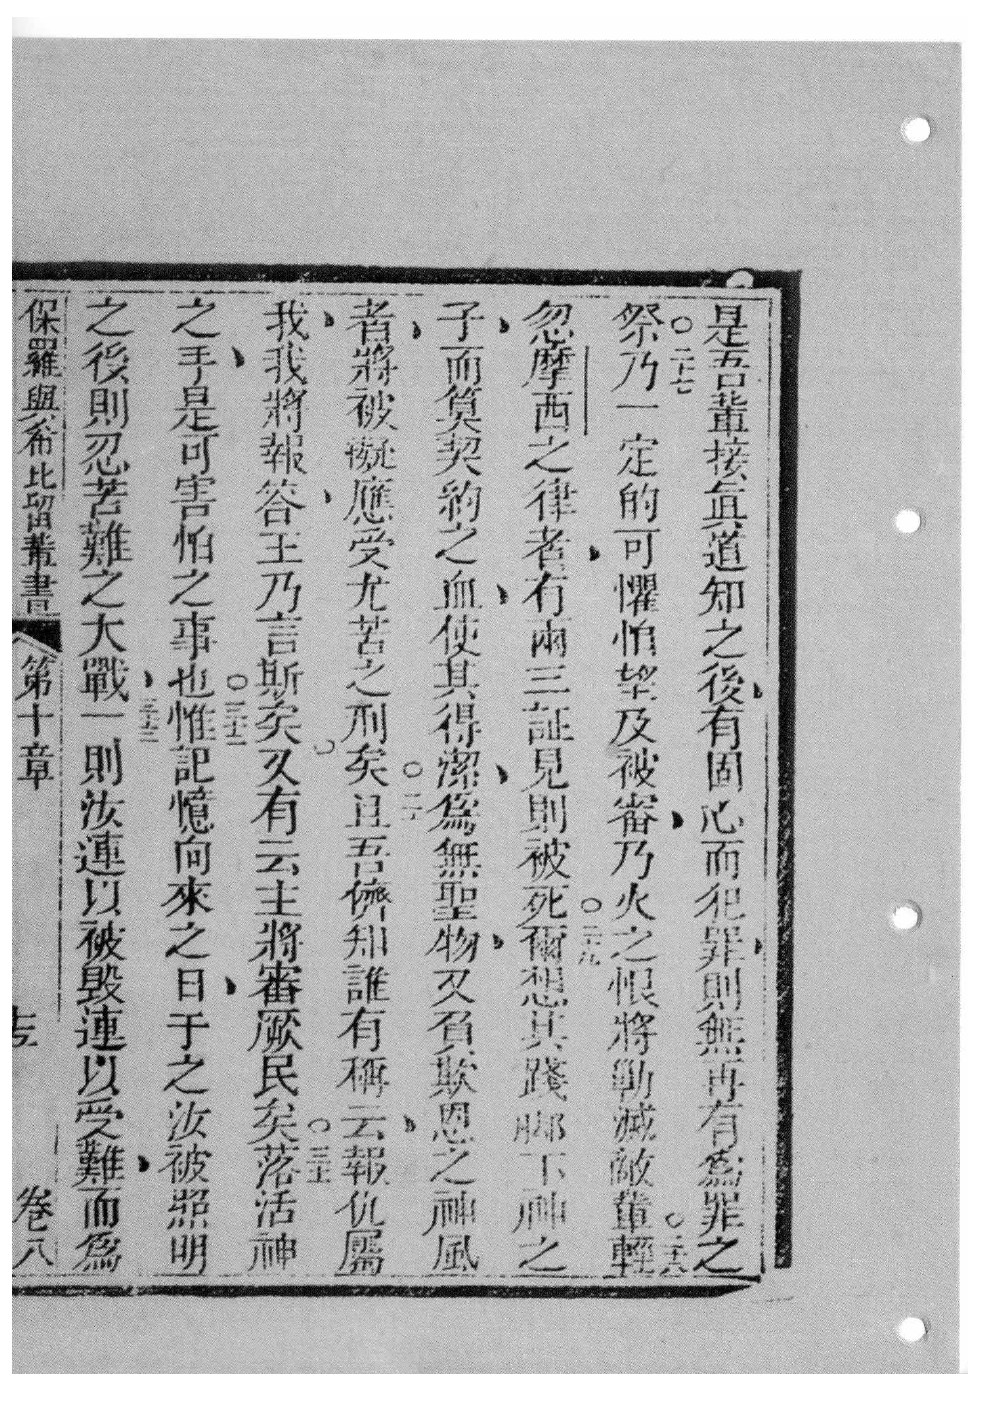 是吾輩接眞道知之後有固心而犯罪則無再有爲罪之
祭○二十七乃一定的可懼怕望及被審乃火之恨將勦滅敵輩○二十八輕
忽摩西之律者有兩三証見則被死○二十九爾想其踐脚下神之
子而筭契約之血使其得潔爲無聖物又負欺恩之神風
者將被擬應受尤苦之刑矣○三十且吾儕知誰有稱云報仇屬
我我將報答主乃言斯矣又有云主將審厥民矣○三十一落活神
之手是可害怕之事也○三十二惟記憶向來之日于之汝被照明
之後則忍苦難之大戰三十三一則汝連以被毀連以受難而爲
保羅與希比留輩書 第十章 卷八